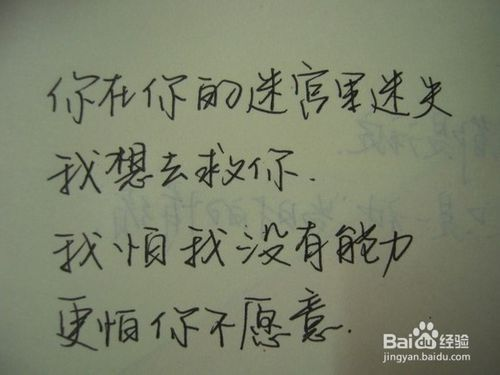 你在你的迷宫里迷失
我想去救你.
我怕我没有能力
更怕你不愿意.
Baidu经验
jingyan.baidu.com